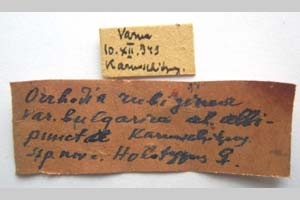 Varna
10.XII.943
Karnoschitzky.
Orrhodia rubiginea
var. bulgarica ab. albi-
punctata Karnoschitzky.
sp. nov. Holotypus ♀.